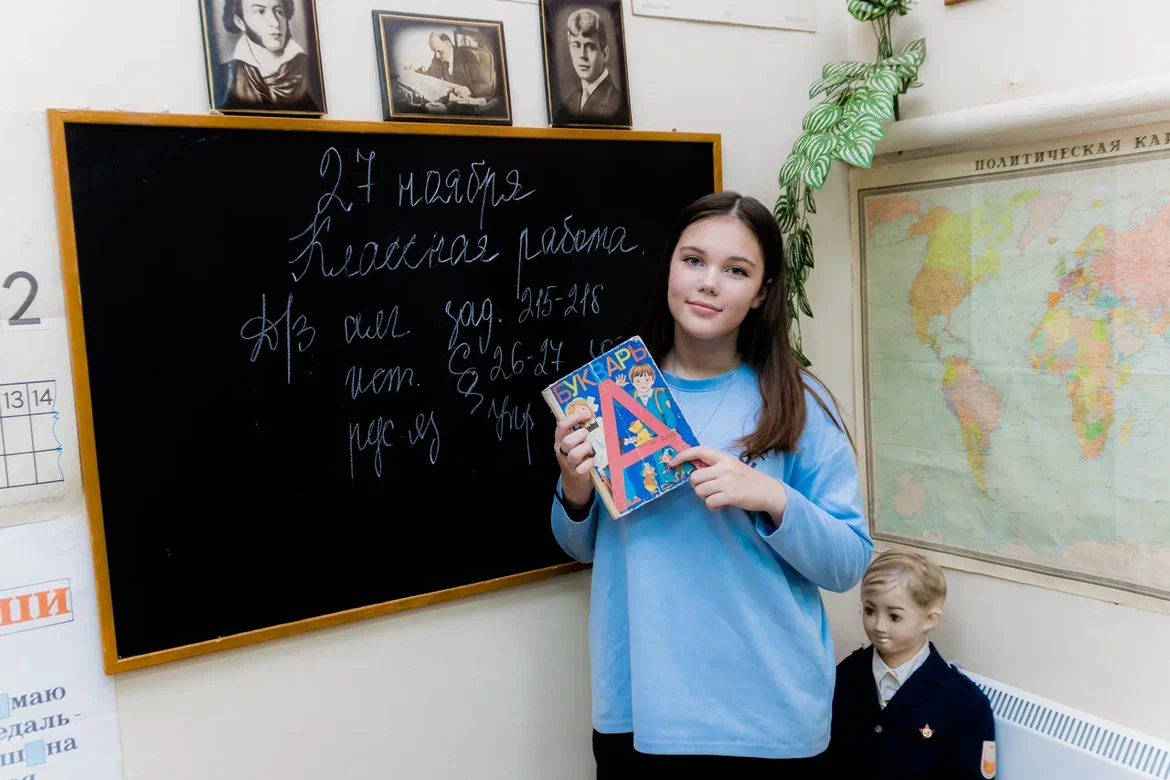 27 ноября
Классная работа.
Д/З алг. зад. 215-218
ист. § 26-27
рус.яз Упр
БУКВАРЬ
А
ПОЛИТИЧЕСКАЯ
2
13 14
ши
маю
едаль-
на